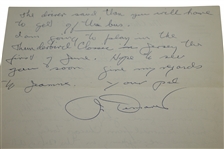 the driver said that you will have
to get off the bus.
I am going to play in the
Thunderbird Classic in Jersey the
first of June. Hope to see
you soon. Give my regards
to Joanne. Your pal